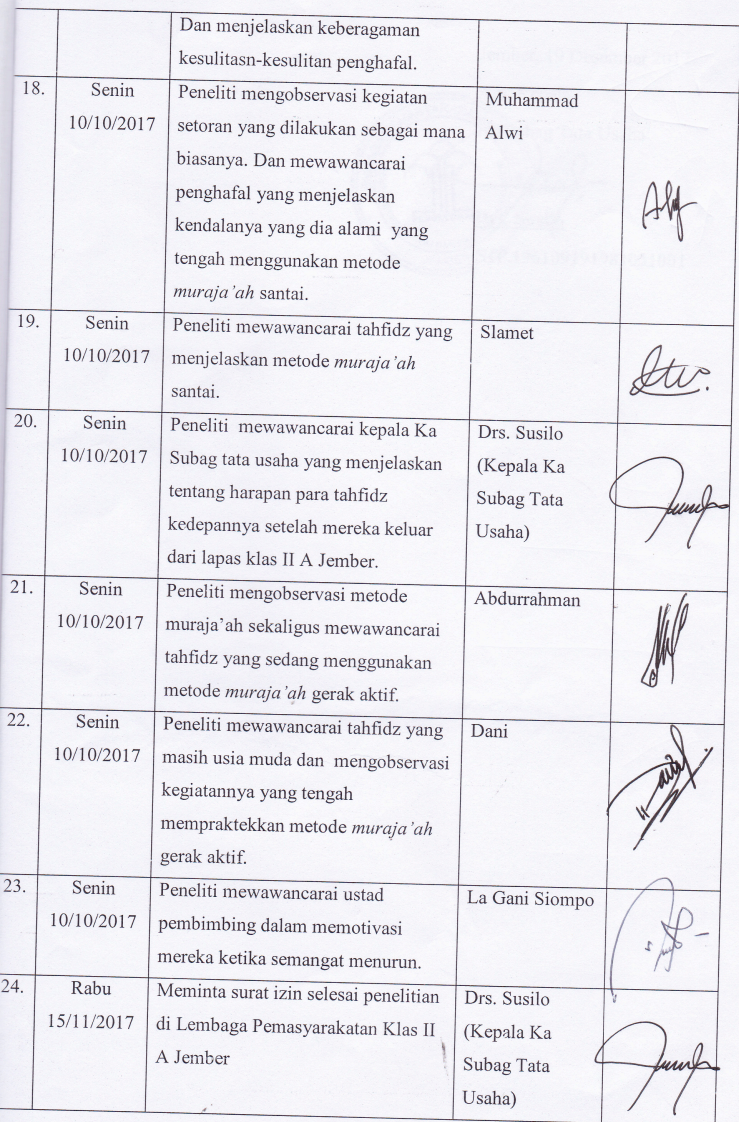 Dan menjelaskan keberagaman
kesulitasn-kesulitan penghafal.
18.
Senin
10/10/2017
Peneliti mengobservasi kegiatan
setoran yang dilakukan sebagai mana
biasanya. Dan mewawancarai
penghafal yang menjelaskan
kendalanya yang dia alami yang
tengah menggunakan metode
muraja’ah santai.
Muhammad
Alwi
19.
Senin
10/10/2017
Peneliti mewawancarai tahfidz yang
menjelaskan metode muraja’ah
santai.
Slamet
20.
Senin
10/10/2017
Peneliti mewawancarai kepala Ka
Subag tata usaha yang menjelaskan
tentang harapan para tahfidz
kedepannya setelah mereka keluar
dari lapas klas II A Jember.
Drs. Susilo
(Kepala Ka
Subag Tata
Usaha)
21.
Senin
10/10/2017
Peneliti mengobservasi metode
muraja’ah sekaligus mewawancarai
tahfidz yang sedang menggunakan
metode muraja’ah gerak aktif.
Abdurrahman
22.
Senin
10/10/2017
Peneliti mewawancarai tahfidz yang
masih usia muda dan mengobservasi
kegiatannya yang tengah
mempraktekkan metode muraja’ah
gerak aktif.
Dani
23.
Senin
10/10/2017
Peneliti mewawancarai ustad
pembimbing dalam memotivasi
mereka ketika semangat menurun.
La Gani Siompo
24.
Rabu
15/11/2017
Meminta surat izin selesai penelitian
di Lembaga Pemasyarakatan Klas II
A Jember
Drs. Susilo
(Kepala Ka
Subag Tata
Usaha)